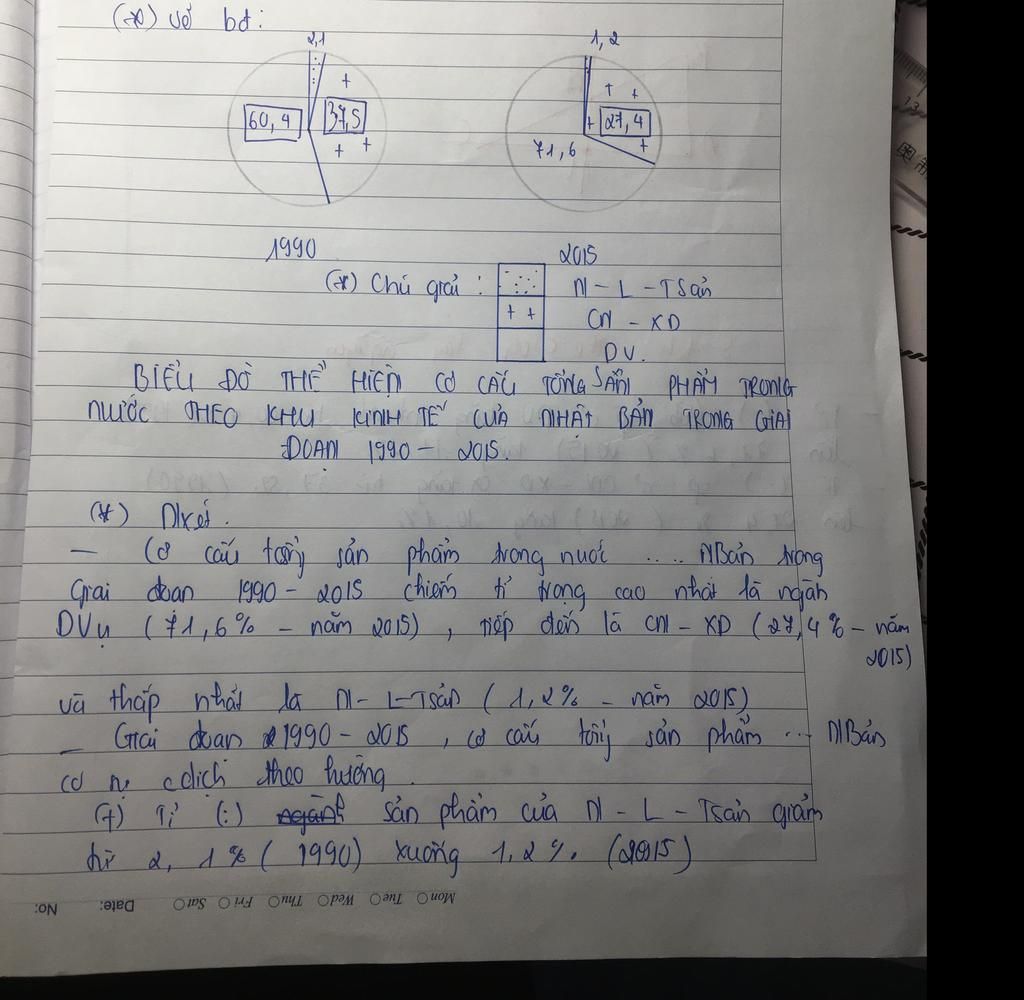 (*) vẽ bđ:
2,1
1, 2
+
+ +
60,4
37,5
+
27,4
+ +
71,6
+
1990
2015
(*) Chú giải :
N - L - TSản
+ +
CN - XD
DV.
BIỂU ĐỒ THỂ HIỆN CƠ CẤU TỔNG SẢN PHẨM TRONG
NƯỚC THEO KHU KINH TẾ CỦA NHẬT BẢN TRONG GIAI
ĐOẠN 1990 - 2015.
(*) Nxét.
- Cơ cấu tổng sản phẩm trong nước .... NBản trong
Giai đoạn 1990 - 2015 chiếm tỉ trọng cao nhất là ngành
DVụ (71,6% - năm 2015), tiếp đến là CN - XD (27,4% - năm
2015)
và thấp nhất là N - L - TSản (1,2% - năm 2015)
- Giai đoạn 1990 - 2015, cơ cấu tổng sản phẩm ... NBản
có cdịch theo hướng
(+) Tỉ (:) sản phẩm của N - L - TSản giảm
từ 2,1% (1990) xuống 1,2%. (2015)
No:
Date:
Mon Tue Wed Thu Fri Sat
13
奥